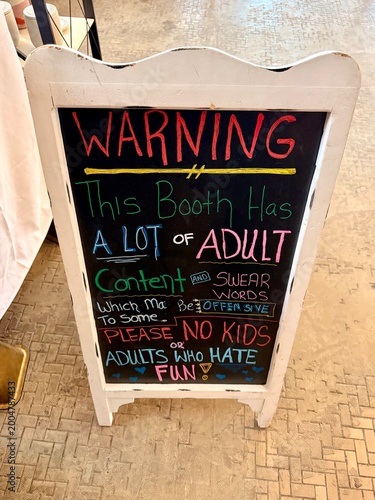 WARNING
This Booth Has
A LOT OF ADULT
Content AND SWEAR WORDS
Which Ma Be OFFENSIVE
To Some...
PLEASE NO KIDS
OR
ADULTS WHO HATE
FUN!
Adobe Stock | #2004787433